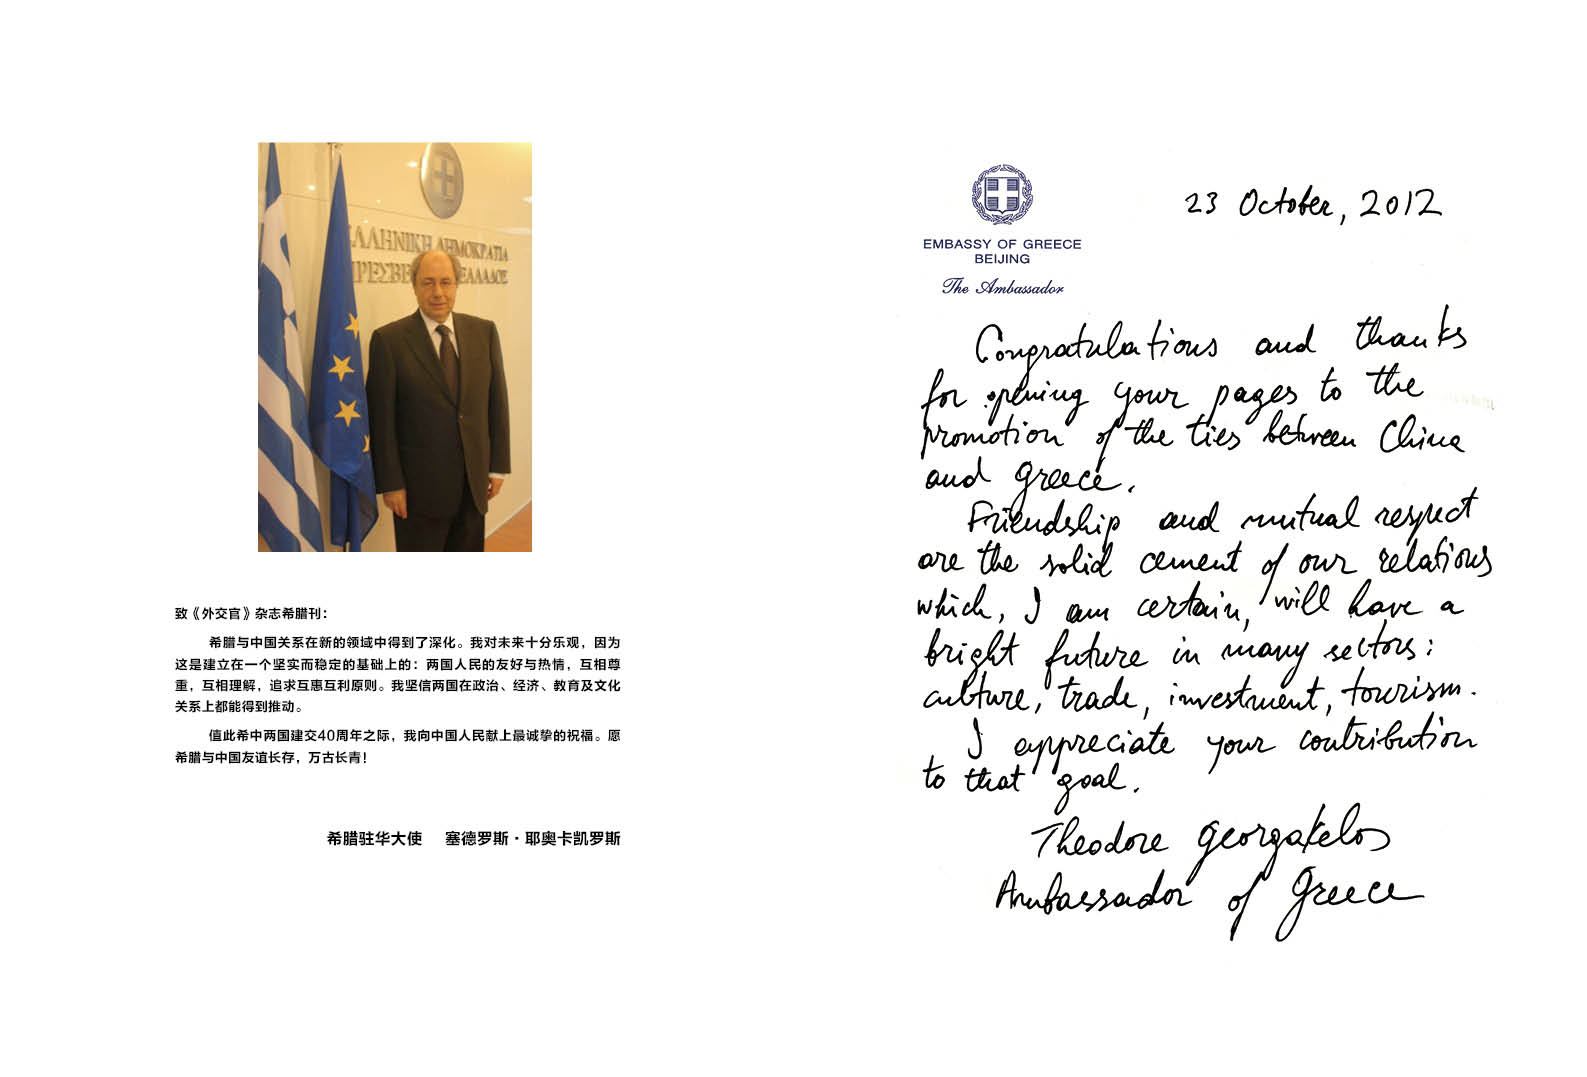 ΕΛΛΗΝΙΚΗ ΔΗΜΟΚΡΑΤΙΑ
ΠΡΕΣΒΕ ΕΛΛΑΔΟΣ
致《外交官》杂志希腊刊：
希腊与中国关系在新的领域中得到了深化。我对未来十分乐观，因为
这是建立在一个坚实而稳定的基础上的：两国人民的友好与热情，互相尊
重，互相理解，追求互惠互利原则。我坚信两国在政治、经济、教育及文化
关系上都能得到推动。
值此希中两国建交40周年之际，我向中国人民献上最诚挚的祝福。愿
希腊与中国友谊长存，万古长青！
希腊驻华大使 塞德罗斯·耶奥卡凯罗斯
EMBASSY OF GREECE
BEIJING
The Ambassador
23 October, 2012
Congratulations and thanks
for opening your pages to the
promotion of the ties between China
and Greece.
Friendship and mutual respect
are the solid cement of our relations
which, I am certain, will have a
bright future in many sectors:
culture, trade, investment, tourism.
I appreciate your contribution
to that goal.
Theodore Georgakelos
Ambassador of Greece